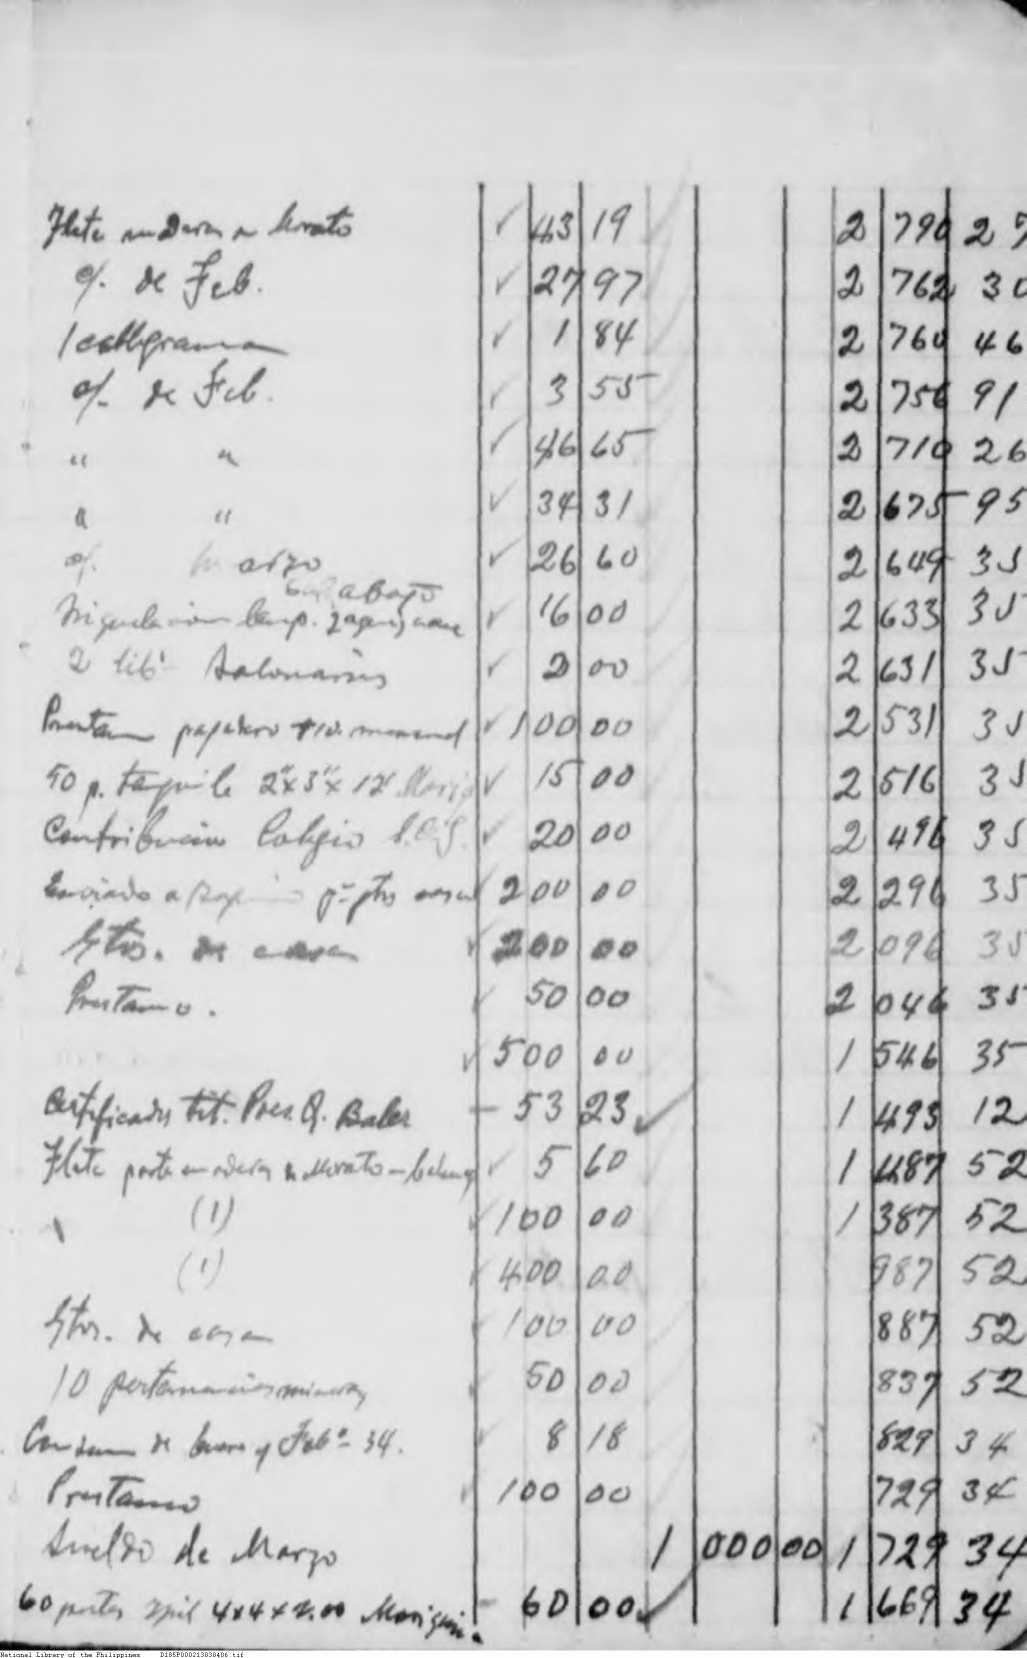 Flete maderas a Morato ✓ 43 19 2 790 27
c/. de Feb. ✓ 27 97 2 762 30
1 cablegrama ✓ 1 84 2 760 46
c/. de Feb. ✓ 3 55 2 756 91
" " ✓ 46 65 2 710 26
" " ✓ 34 31 2 675 95
c/. Marzo ✓ 26 60 2 649 35
abajo
✓ 16 00 2 633 35
2 lib. talonarios ✓ 2 00 2 631 35
pagadero ₱10. mensual ✓ 100 00 2 531 35
50 p. 2"x3"x12' ✓ 15 00 2 516 35
Contribución Colegio ✓ 20 00 2 496 35
Enviado a 200 00 2 296 35
Gtos. de casa ✓ 200 00 2 096 35
Prestamo. ✓ 50 00 2 046 35
✓ 500 00 1 546 35
Certificados tit. Pres. Q. Baler - 53 23 ✓ 1 493 12
Flete Morato ✓ 5 60 1 487 52
(1) ✓ 100 00 1 387 52
(1) ✓ 400 00 987 52
Gtos. de casa 100 00 887 52
10 pertenencias mineras ✓ 50 00 837 52
de Enero y Feb. 34. ✓ 8 18 829 34
Prestamo ✓ 100 00 729 34
Sueldo de Marzo 1 000 00 1 729 34
60 postes ipil 4x4x2.00 - 60 00 ✓ 1 669 34
National Library of the Philippines D185P000213830406.tif